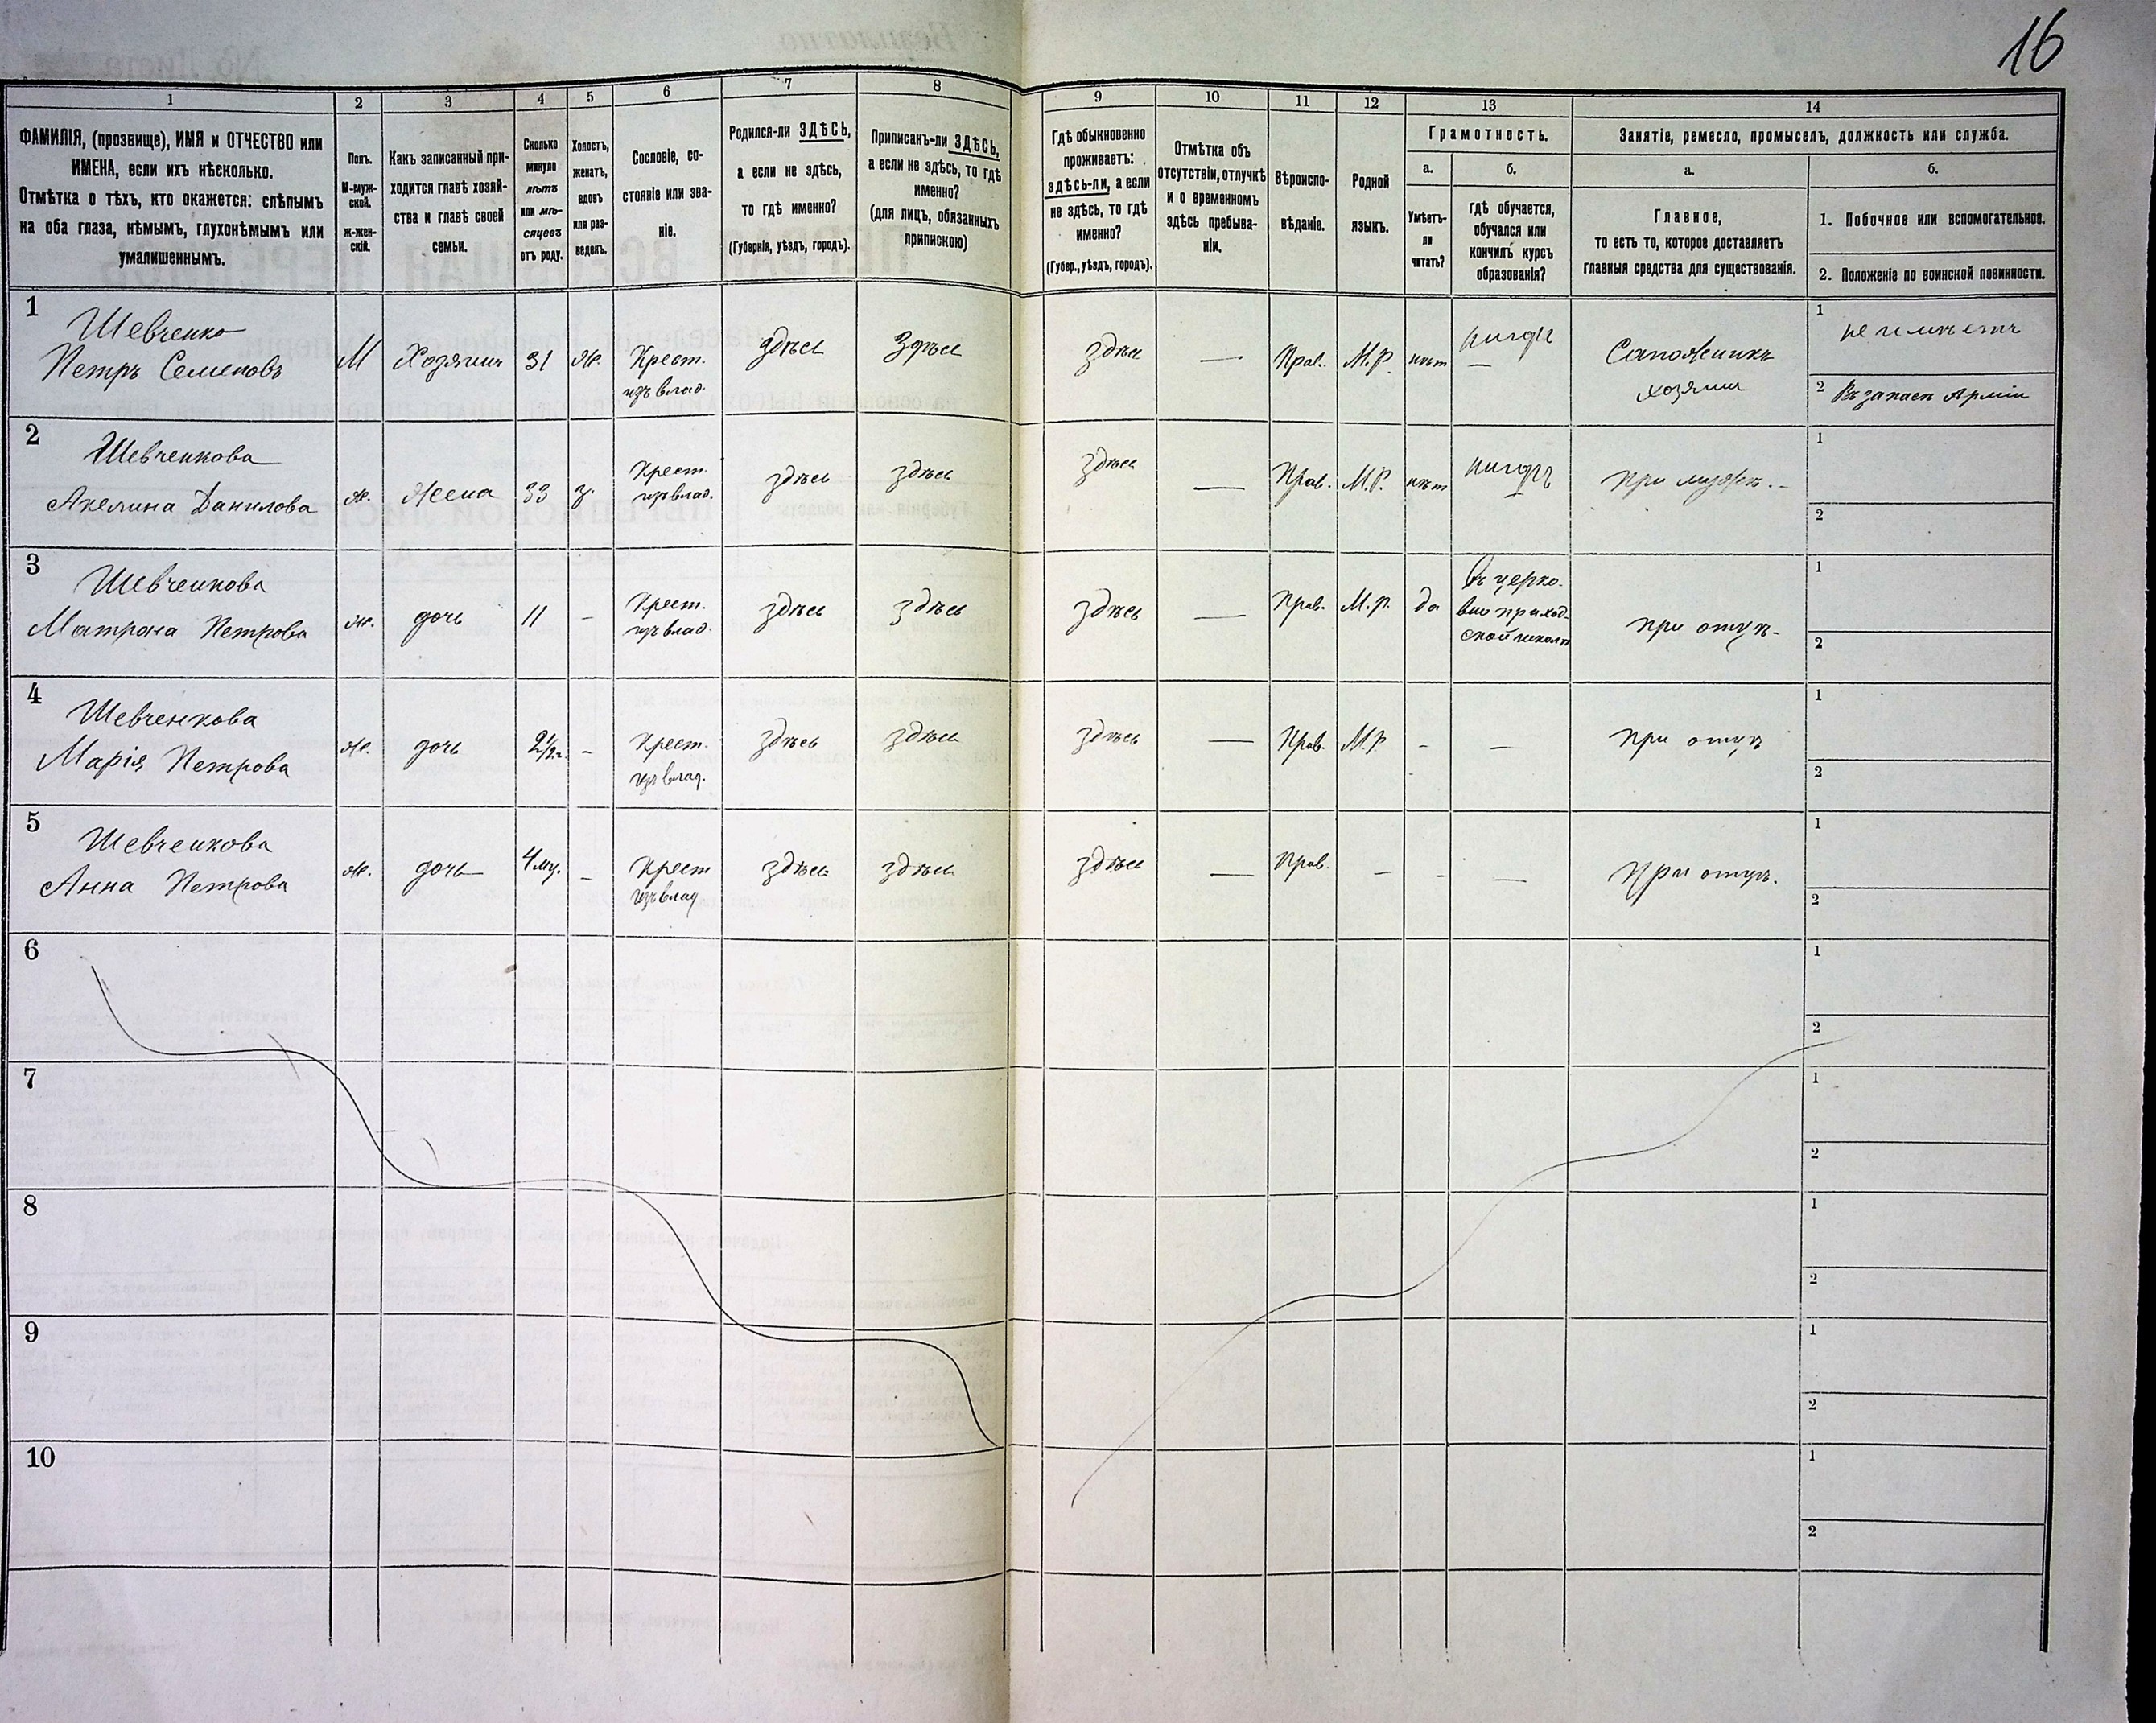 16
1
2
3
4
5
6
7
8
9
10
11
12
13
14
ФАМИЛІЯ, (прозвище), ИМЯ и ОТЧЕСТВО или
ИМЕНА, если ихъ нѣсколько.
Отмѣтка о тѣхъ, кто окажется: слѣпымъ
на оба глаза, нѣмымъ, глухонѣмымъ или
умалишеннымъ.
Полъ.
М-муж-
ской.
Ж-жен-
скій.
Какъ записанный при-
ходится главѣ хозяй-
ства и главѣ своей
семьи.
Сколько
минуло
лѣтъ
или мѣ-
сяцевъ
отъ роду.
Холостъ,
женатъ,
вдовъ
или раз-
веденъ.
Сословіе, со-
стояніе или зва-
ніе.
Родился-ли ЗДѢСЬ,
а если не здѣсь,
то гдѣ именно?
(Губернія, уѣздъ, городъ).
Приписанъ-ли ЗДѢСЬ,
а если не здѣсь, то гдѣ
именно?
(для лицъ, обязанныхъ
припискою)
Гдѣ обыкновенно
проживаетъ:
здѣсь-ли, а если
не здѣсь, то гдѣ
именно?
(Губер., уѣздъ, городъ).
Отмѣтка объ
отсутствіи, отлучкѣ
и о временномъ
здѣсь пребыва-
ніи.
Вѣроиспо-
вѣданіе.
Родной
языкъ.
Грамотность.
а.
Умѣетъ-
ли
читать?
б.
гдѣ обучается,
обучался или
кончилъ курсъ
образованія?
Занятіе, ремесло, промыселъ, должность или служба.
а.
Главное,
то есть то, которое доставляетъ
главныя средства для существованія.
б.
1. Побочное или вспомогательное.
2. Положеніе по воинской повинности.
1
Шевченко
Петръ Семеновъ
М
Хозяинъ
31
Ж.
Крест.
изъ влад.
здѣсь
здѣсь
здѣсь
—
Прав.
М.Р.
нѣт
нигдѣ
—
Сапожникъ
хозяин
1
не имѣетъ
2
Въ запасѣ Арміи
2
Шевченкова
Акелина Данилова
ж.
Жена
33
з.
Крест.
изъ влад.
здѣсь
здѣсь
здѣсь
—
Прав.
М.Р.
нѣт
нигдѣ
—
При мужѣ. -
1
2
3
Шевченкова
Матрона Петрова
ж.
дочь
11
-
Крест.
изъ влад.
здѣсь
здѣсь
здѣсь
—
Прав.
М.Р.
да
Въ церко-
вно приход-
ской школѣ
при отцѣ -
1
2
4
Шевченкова
Марія Петрова
ж.
дочь
2 1/2 г.
-
Крест.
изъ влад.
здѣсь
здѣсь
здѣсь
—
Прав.
М.Р.
-
—
При отцѣ
1
2
5
Шевченкова
Анна Петрова
ж.
дочь
4 мц.
-
Крест
изъ влад
здѣсь
здѣсь
здѣсь
—
Прав.
—
-
—
При отцѣ.
1
2
6
1
2
7
1
2
8
1
2
9
1
2
10
1
2